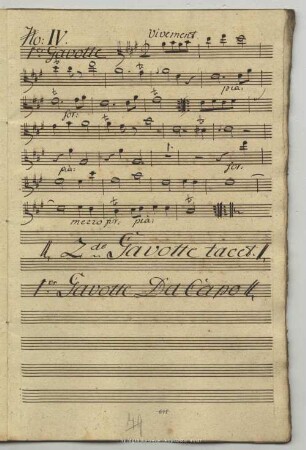 No: IV.
1re Gavotte vivement
pia:
for:
pia: for:
mezzo for. pia:
2de Gavotte tacet.
1re Gavotte Da Capo